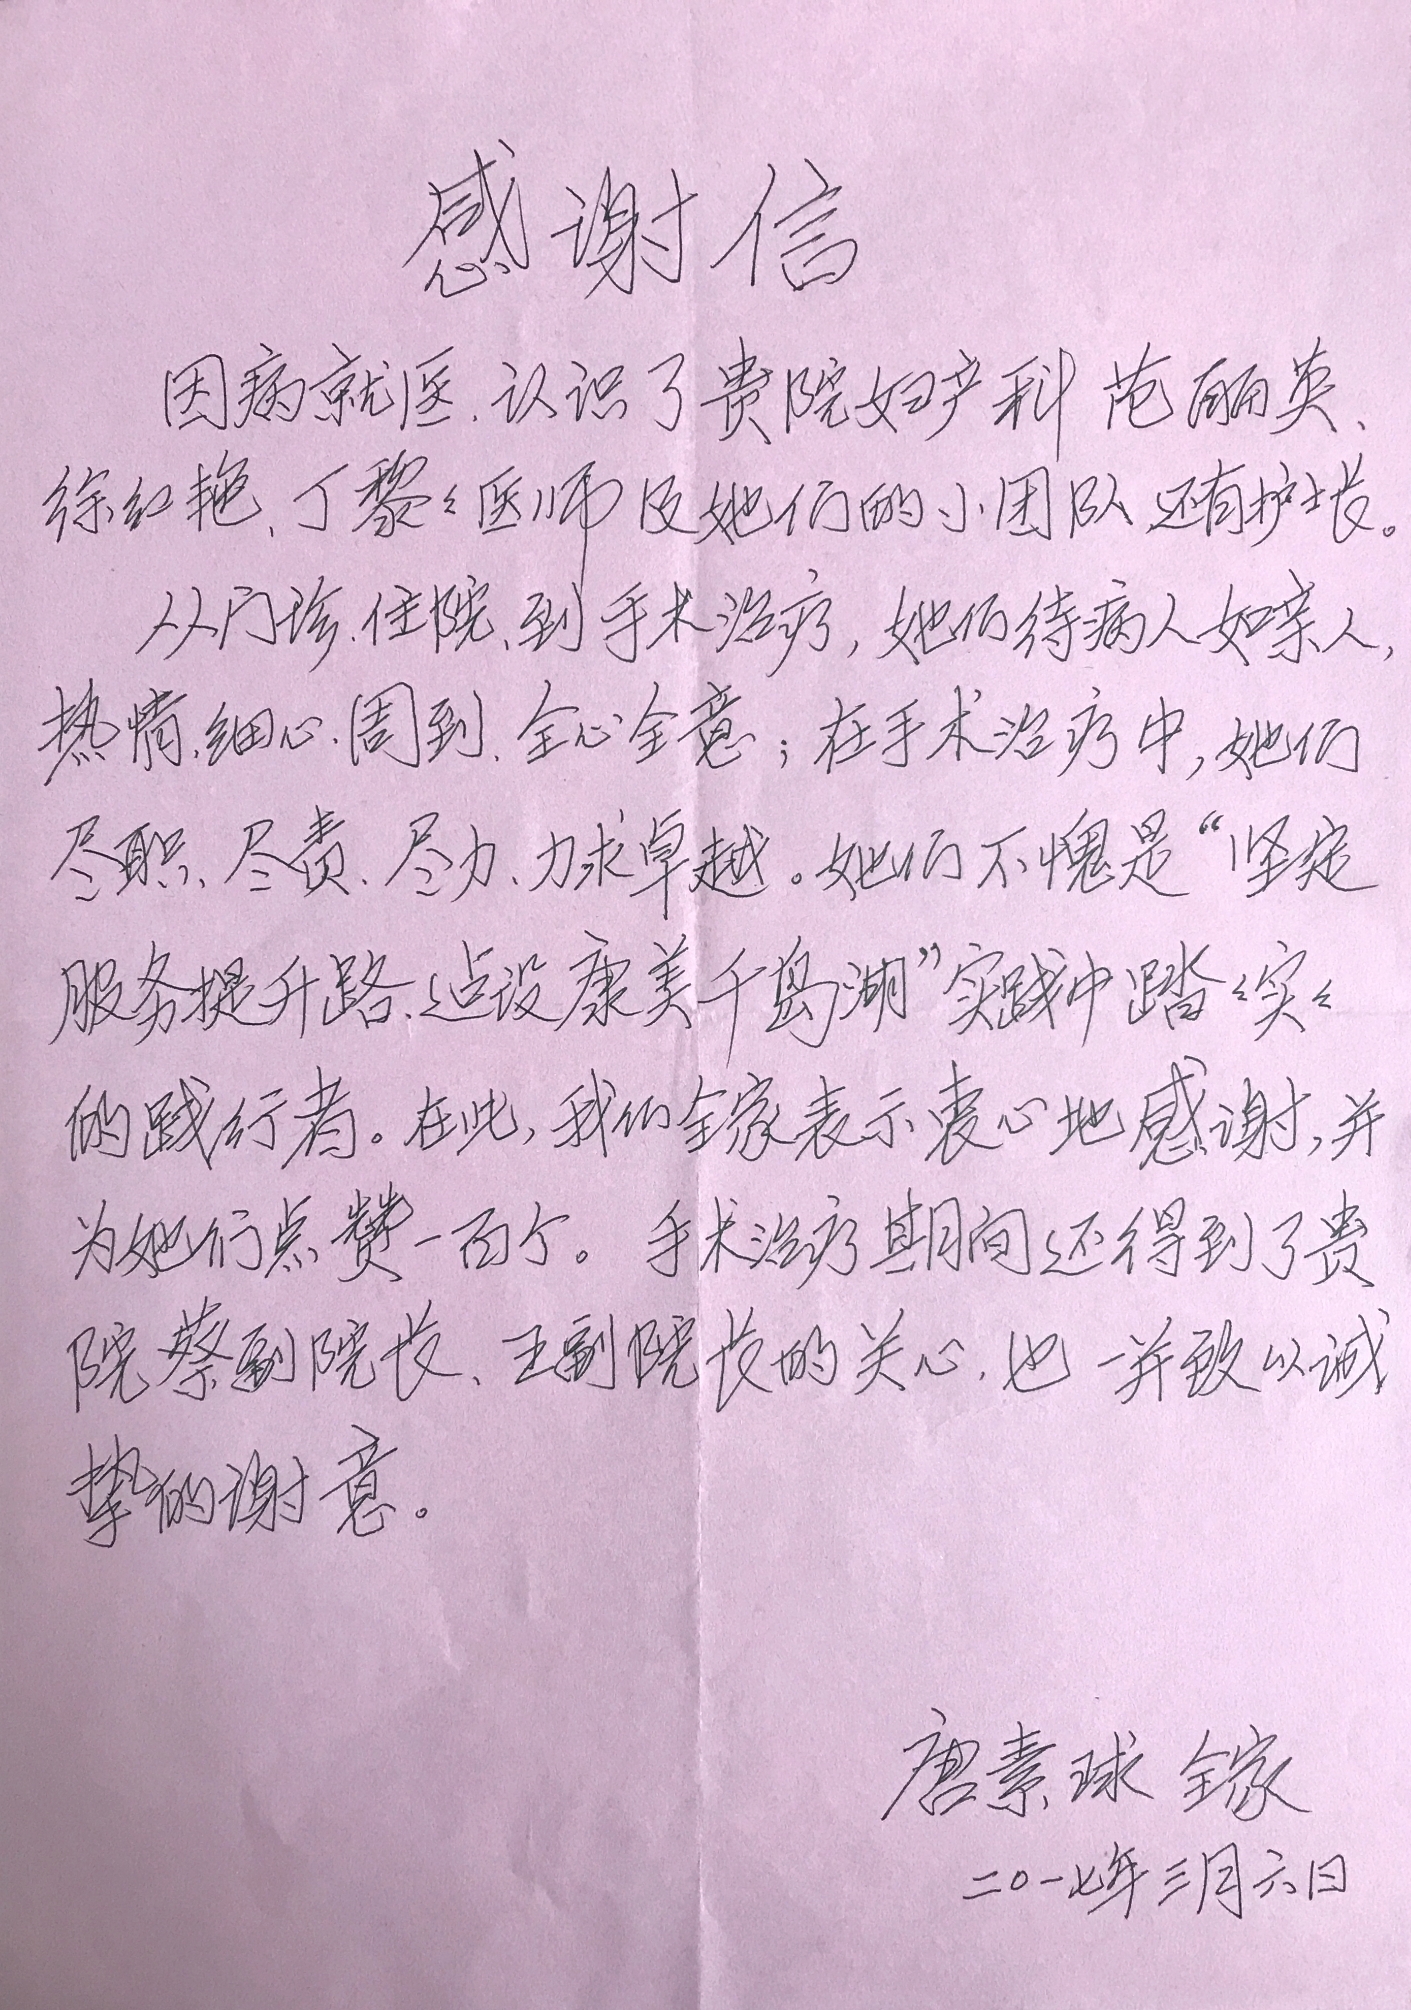 感谢信
因病就医、认识了贵院妇产科范丽英、
徐红艳、丁黎黎医师及她们的小团队还有护士长。
从门诊、住院、到手术治疗，她们待病人如亲人，
热情、细心、周到、全心全意；在手术治疗中，她们
尽职、尽责、尽力、力求卓越。她们不愧是“坚定
服务提升路、建设康美千岛湖”实践中踏踏实实
的践行者。在此，我们全家表示衷心地感谢，并
为她们点赞一百个。手术治疗期间还得到了贵
院蔡副院长、王副院长的关心、也一并致以诚
挚的谢意。
唐素球 全家
二〇一七年三月六日